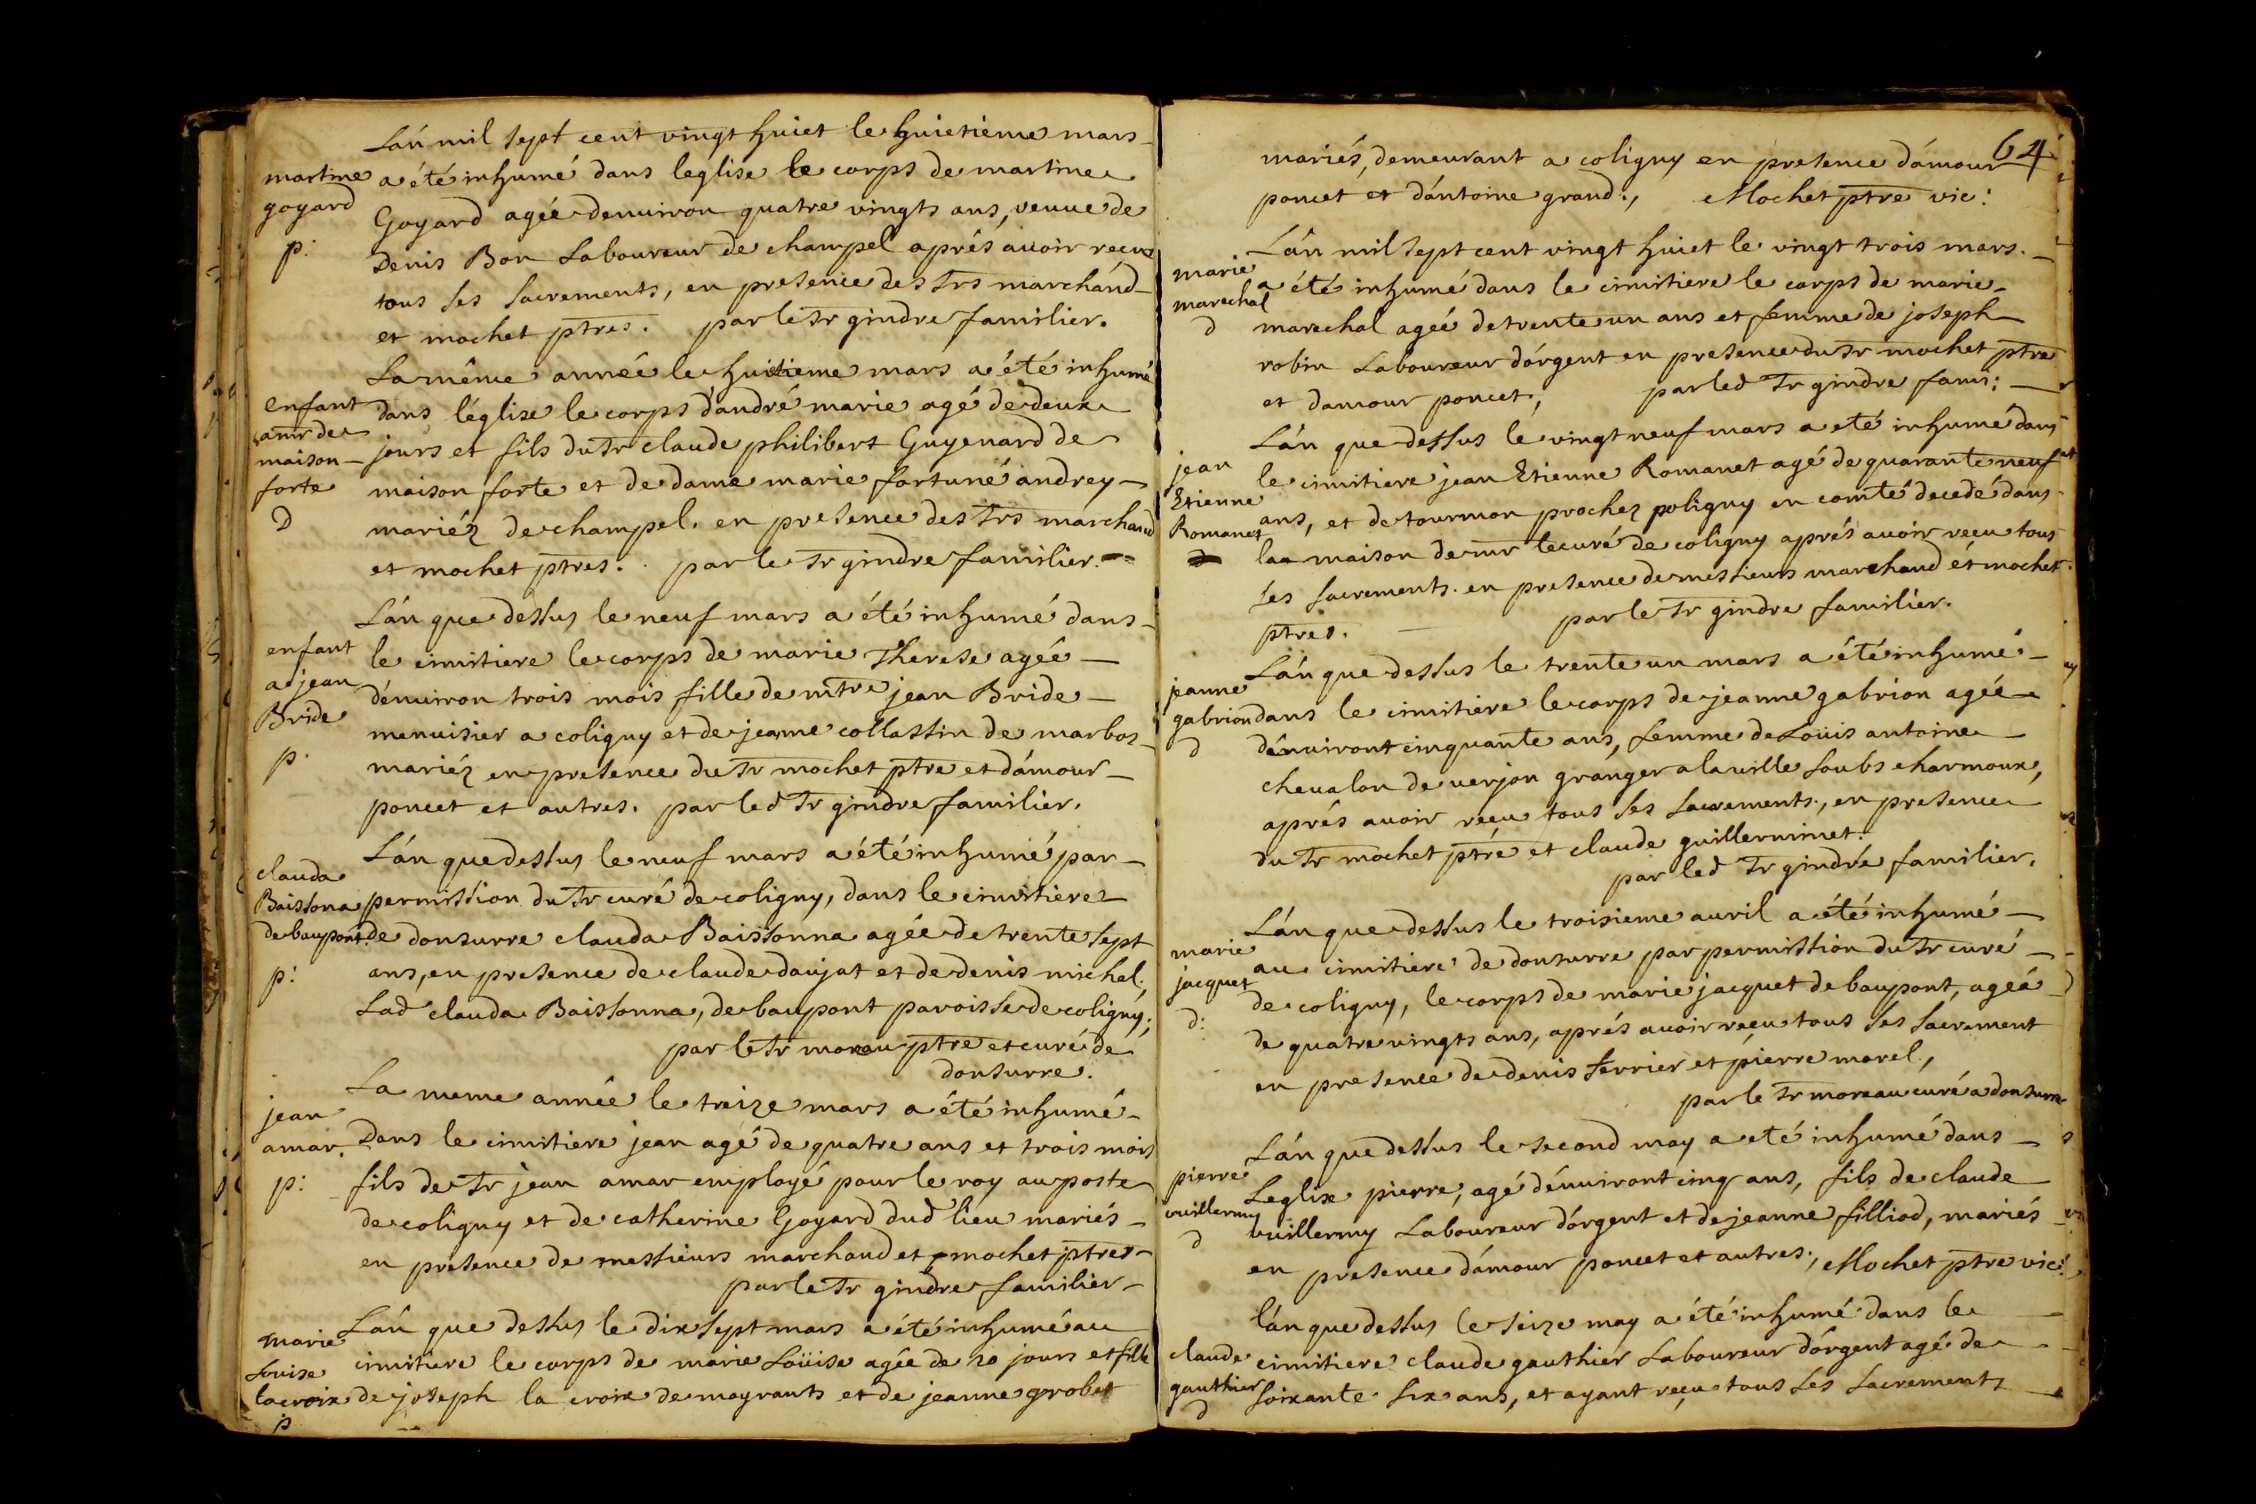 Lán mil sept cent vingt huict le huictieme mars
martine
goyard
p:
a été inhumé dans leglise le corps de martine
Goyard agée denuiron quatre vingts ans, veuue de
Denis Bon Laboureur de champel aprés auoir reçu
tous ses sacrements, en presence des srs marchánd
et mochet ptres. par le sr gindre familier.
La même année le huictieme mars a été inhumé
enfant
a mr de
maison
forte
D
dans léglise le corps d'andré marie agé de deux
jours et fils du sr claude philibert Guyenard de
maison forte et de dame marie fortuné andrey
mariéz de champel. en presence des srs marchand
et mochet ptres. par le sr gindre familier.
Lán que dessus le neuf mars a été inhumé dans
enfant
a jean
Bride
p.
le cimitiere le corps de marie Therese agée
dénuiron trois mois fille de mtre jean Bride
menuisier a coligny et de jeanne collassin de marbos
mariéz en presence du sr mochet ptre et dámour
poncet et autres. par led sr gindre familier.
Lán que dessus le neuf mars a été inhumé par
clauda
Baissona
de baupont.
p:
permission du sr curé de coligny, dans le cimitiere
de donsurre clauda Baissonna agée de trente sept
ans, en presence de claude daujat et de denis michal.
Lad clauda Baissonna, de baupont paroisse de coligny;
par le sr moreau ptre et curé de
donsurre.
La meme année le treize mars a été inhumé
jean
amar.
p:
Dans le cimitiere jean agé de quatre ans et trois mois
fils de sr jean amar employé pour le roy au poste
de coligny et de catherine Goyard dud lieu mariés
en presence de messieurs marchand et mochet ptres
par le sr gindre familier
Lán que dessus le dix sept mars a été inhumé au
marie
Louise
lacroix
p
cimitiere le corps de marie Loüise agée de 20 jours et fille
de joseph la croix de mayrants et de jeanne grobet
64
mariés, demeurant a coligny en presence dámour
poncet et dántoine grand., Mochet ptre vic:
Lán mil sept cent vingt huict le vingt trois mars.
marie
marechal
d
a été inhumé dans le cimitiere le corps de marie
marechal agée de trente un ans et femme de joseph
robin Laboureur dórgent en presence du sr mochet ptre
et damour poncet, par led sr gindre fami:
Lán que dessus le vingt neuf mars a eté inhumé dans
jean
Etienne
Romanet
le cimitiere jean Etienne Romanet agé de quarante neuf
ans, et de tourmon prochez poligny en comté decedé dans
la maison de mr le curé de coligny aprés auoir reçu tous
ses sacrements. en presence de messieurs marchand et mochet
ptres. par le sr gindre familier.
Lán que dessus le trente un mars a été inhumé
jeanne
gabrion
d
dans le cimitiere le corps de jeanne gabrion agée
dénuiront cinquante ans, femme de Loüis antoine
cheualon de verjon granger a la ville soubs charmoux,
aprés auoir reçu tous ses sacrements, en presence
du sr mochet ptre et claude guilleminet.
par led sr gindre familier.
Lán que dessus le troisieme auril a été inhumé
marie
jacquet
d:
au cimitiere de donsurre par permission du sr curé
de coligny, le corps de marie jacquet de baupont, ageé
de quatre vingts ans, aprés auoir reçu tous ses sacrement
en presence de denis ferrier et pierre morel,
par le sr moreau curé a donsurre
Lán que dessus le second may a eté inhumé dans
pierre
vuillermy
d
Leglise pierre, agé dénuiront cinq ans, fils de claude
vuillermy Laboureur dórgent et de jeanne filliod, mariés
en presence dámour poncet et autres, Mochet ptre vic:
lán que dessus le seize may a été inhumé dans le
claude
gauthier
d
cimitiere claude gauthier Laboureur dórgent agé de
soixante six ans, et ayant reçu tous ses sacrements